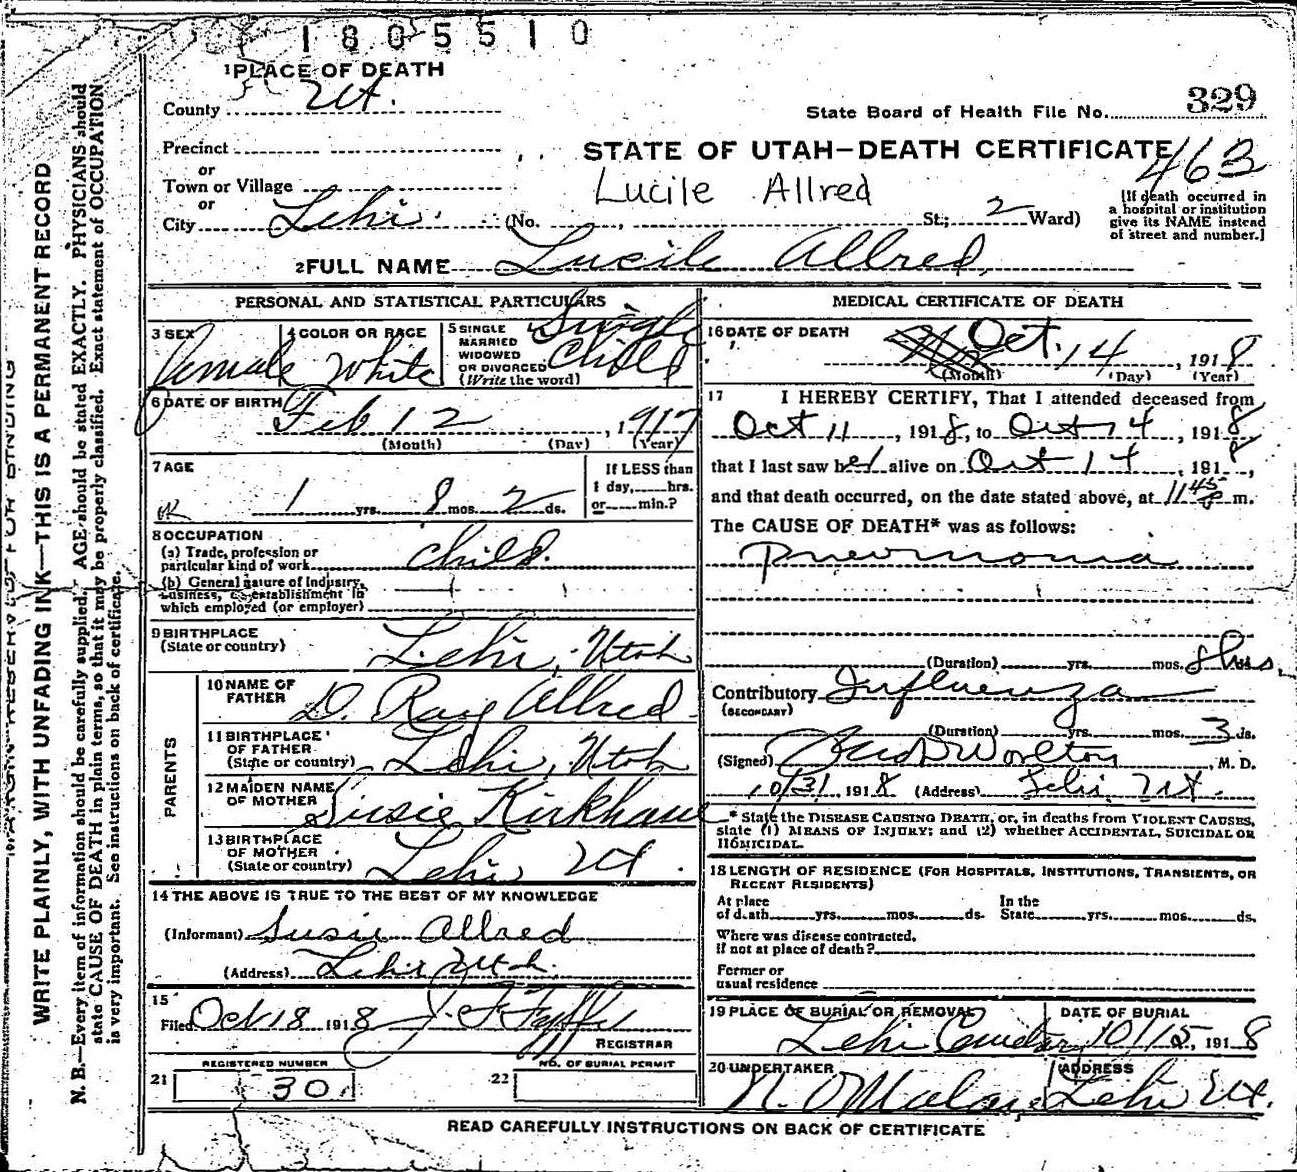 1805510
1 PLACE OF DEATH
County Ut.
State Board of Health File No. 329
Precinct
or
Town or Village
or
City Lehi.
STATE OF UTAH—DEATH CERTIFICATE
463
Lucile Allred
(No. St.; 2 Ward)
[If death occurred in
a hospital or institution
give its NAME instead
of street and number.]
2 FULL NAME Lucile Allred
PERSONAL AND STATISTICAL PARTICULARS
3 SEX
Female
4 COLOR OR RACE
White
5 SINGLE
MARRIED
WIDOWED
OR DIVORCED
(Write the word)
Single
Child
6 DATE OF BIRTH
Feb 12, 1917
(Month) (Day) (Year)
7 AGE
1 yrs. 8 mos. 2 ds.
If LESS than
1 day, hrs.
or min.?
OK
8 OCCUPATION
(a) Trade, profession or
particular kind of work Child.
(b) General nature of Industry,
business, or establishment in
which employed (or employer)
9 BIRTHPLACE
(State or country) Lehi, Utah
PARENTS
10 NAME OF
FATHER D. Ray Allred
11 BIRTHPLACE
OF FATHER
(State or country) Lehi, Utah
12 MAIDEN NAME
OF MOTHER Susie Kirkham
13 BIRTHPLACE
OF MOTHER
(State or country) Lehi Ut.
14 THE ABOVE IS TRUE TO THE BEST OF MY KNOWLEDGE
(Informant) Susie Allred
(Address) Lehi Utah.
15
Filed Oct 18 1918
REGISTRAR
REGISTERED NUMBER
21 30
NO. OF BURIAL PERMIT
22
MEDICAL CERTIFICATE OF DEATH
16 DATE OF DEATH
Oct. 14, 1918
(Month) (Day) (Year)
17 I HEREBY CERTIFY, That I attended deceased from
Oct 11, 1918, to Oct 14, 1918
that I last saw her alive on Oct 14, 1918,
and that death occurred, on the date stated above, at 11 45 m.
The CAUSE OF DEATH* was as follows:
Pneumonia
(Duration) yrs. mos. 8 hrs.
Contributory Influenza
(SECONDARY)
(Duration) yrs. mos. 3 ds.
(Signed) Worlton, M. D.
10/31, 1918 (Address) Lehi, Ut.
* State the DISEASE CAUSING DEATH, or, in deaths from VIOLENT CAUSES,
state (1) MEANS OF INJURY; and (2) whether ACCIDENTAL, SUICIDAL OR
HOMICIDAL.
18 LENGTH OF RESIDENCE (FOR HOSPITALS, INSTITUTIONS, TRANSIENTS, OR
RECENT RESIDENTS)
At place
of death yrs. mos. ds.
In the
State yrs. mos. ds.
Where was disease contracted,
if not at place of death?
Former or
usual residence
19 PLACE OF BURIAL OR REMOVAL
Lehi
DATE OF BURIAL
10/15, 1918
20 UNDERTAKER
ADDRESS
Lehi Ut.
READ CAREFULLY INSTRUCTIONS ON BACK OF CERTIFICATE
MARGIN RESERVED FOR BINDING
WRITE PLAINLY, WITH UNFADING INK—THIS IS A PERMANENT RECORD
N. B.—Every item of information should be carefully supplied. AGE should be stated EXACTLY. PHYSICIANS should
state CAUSE OF DEATH in plain terms, so that it may be properly classified. Exact statement of OCCUPATION
is very important. See instructions on back of certificate.